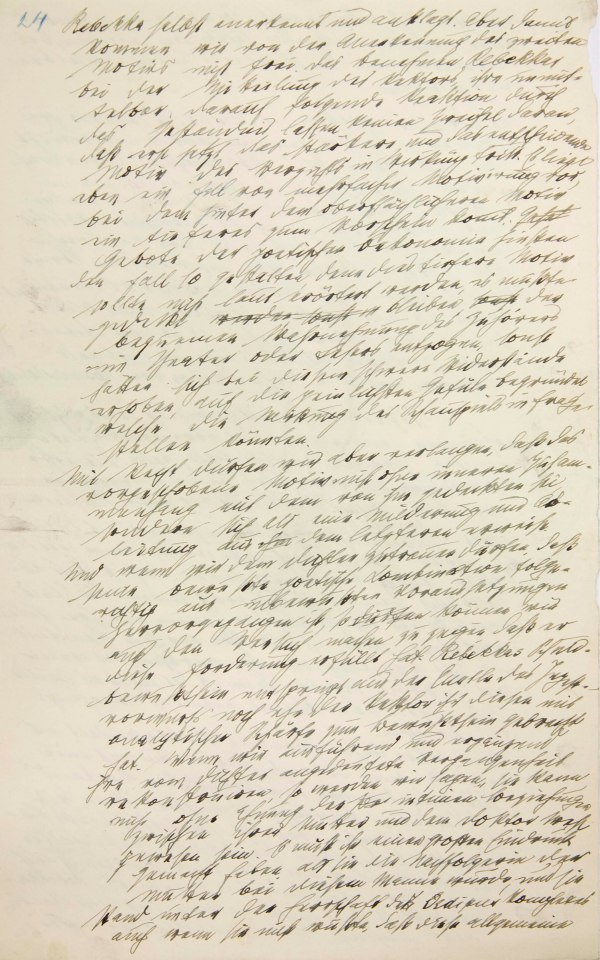 24 Rebekka selbst anerkennt und anklagt. Aber damit
kommen wir von der Anerkennung des zweiten
Motivs nicht frei. Das Benehmen Rebekkas
bei der Mitteilung des Rektors, ihre unmit-
telbar darauf folgende Reaktion durch
das Geständnis lassen keinen Zweifel daran,
daß erst jetzt das stärkere und das entscheidende
Motiv des Verzichts in Wirkung tritt. Es liegt
eben ein Fall von mehrfacher Motivirung vor,
bei dem hinter dem oberflächlicheren Motiv
ein tieferes zum Vorschein komt.
Gebote der poetischen Oekonomie hießen
den Fall so gestalten, denn dies tiefere Motiv
sollte nicht laut erörtert werden, es mußte
gedeckt bleiben, der
bequemen Warnehmung des Zuhörers
im Theater oder Lesers entzogen, sonst
hätten sich bei diesem schwere Widerstände
erhoben, auf die peinlichsten Gefüle begründet,
welche die Wirkung des Schauspiels in Frage
stellen könnten.
Mit Recht dürfen wir aber verlangen, daß das
vorgeschobene Motiv nicht ohne inneren Zusam-
menhang mit dem von ihm gedeckten sei,
sondern sich als eine Milderung und Ab-
leitung aus dem letzteren erweise.
Und wenn wir dem Dichter zutrauen dürfen, daß
seine bewußte poetische Kombination folge-
richtig aus unbewußten Voraussetzungen
hervorgegangen ist, so können wir
auch den Versuch machen zu zeigen, daß er
diese Forderung erfüllt hat. Rebekkas Schuld-
bewußtsein entspringt aus der Quelle des Inzest-
vorwurfs, noch ehe der Rektor ihr diesen mit
analytischer Schärfe zum Bewußtsein gebracht
hat. Wenn wir ausführend und ergänzend
ihre vom Dichter angedeutete Vergangenheit
rekonstruiren, so werden wir sagen, sie kann
nicht ohne Ahnung der intimen Beziehungen
zwischen ihrer Mutter und dem Doktor West
gewesen sein. Es muß ihr einen großen Eindruck
gemacht haben, als sie die Nachfolgerin der
Mutter bei diesem Manne wurde und sie
stand unter der Herrschaft des Oedipus komplexes
auch wenn sie nicht wußte, daß diese allgemeine